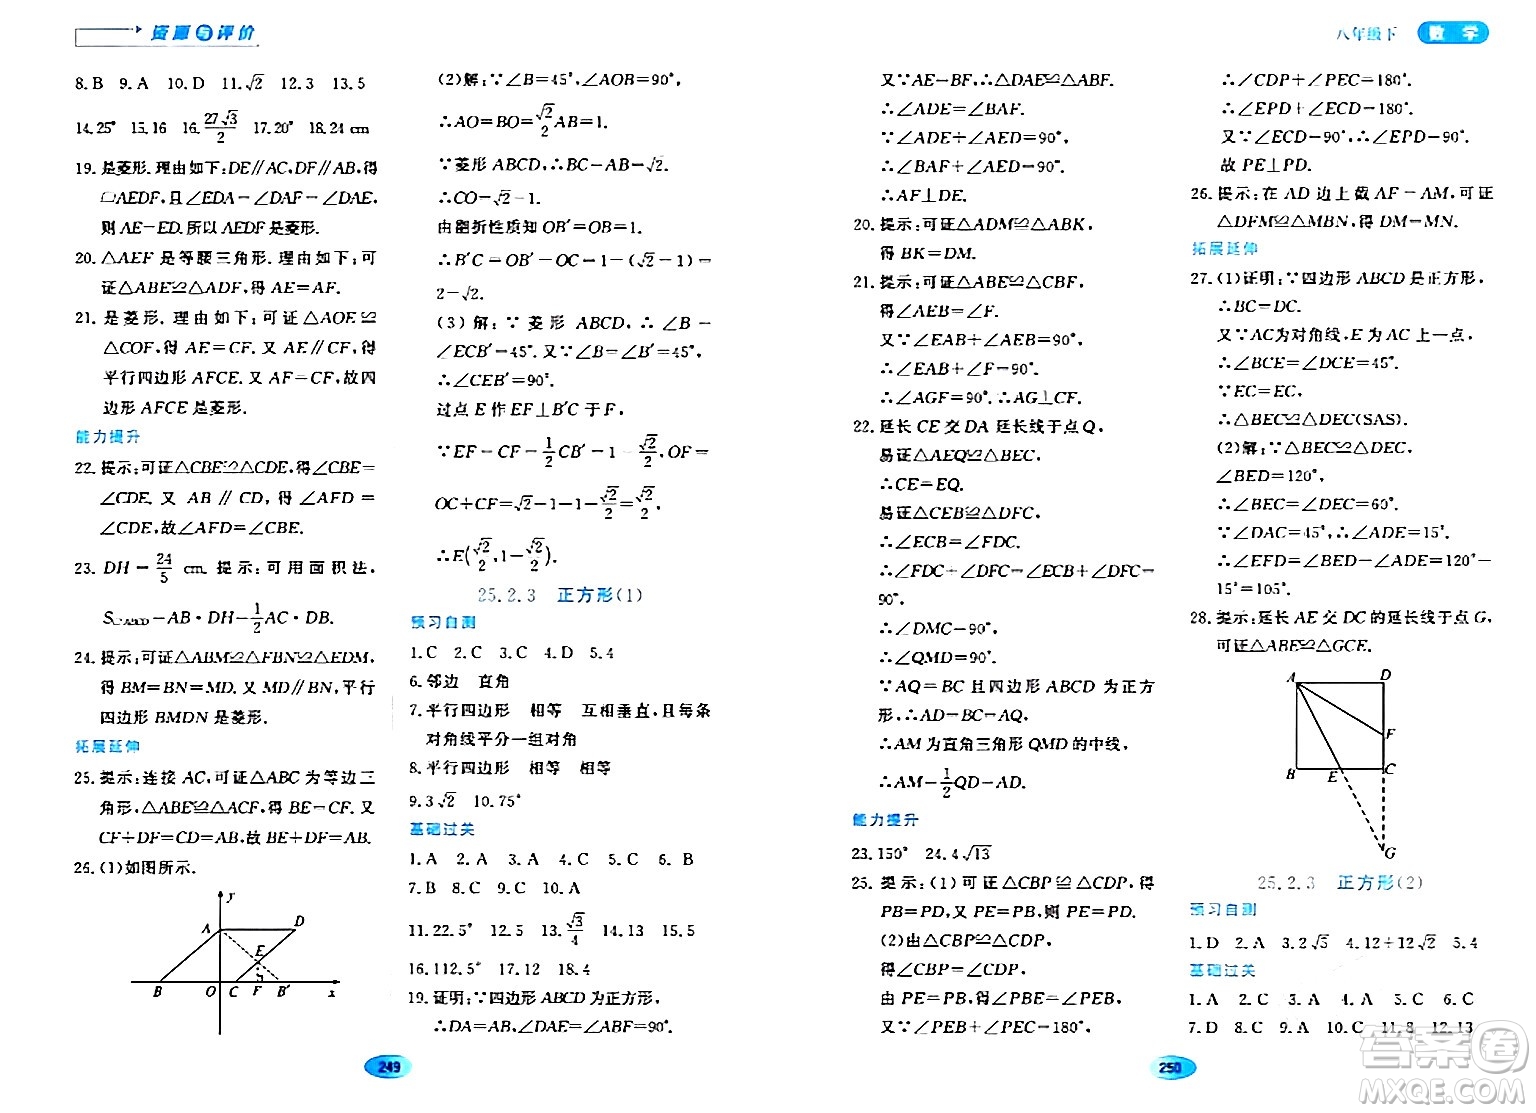 资源与评价
8. B 9. A 10. D 11. √2 12. 3 13. 5
14. 25° 15. 16 16. 27√3/2 17. 20° 18. 24 cm
19. 是菱形. 理由如下:DE∥AC,DF∥AB,得
▱AEDF,且∠EDA=∠DAF=∠DAE,
则 AE=ED. 所以 AEDF 是菱形.
20. △AEF 是等腰三角形. 理由如下:可
证△ABE≌△ADF,得 AE=AF.
21. 是菱形. 理由如下:可证△AOE≌
△COF,得 AE=CF. 又 AE∥CF,得
平行四边形 AFCE. 又 AF=CF,故四
边形 AFCE 是菱形.
能力提升
22. 提示:可证△CBE≌△CDE,得∠CBE=
∠CDE. 又 AB∥CD,得∠AFD=
∠CDE,故∠AFD=∠CBE.
23. DH=24/5 cm. 提示:可用面积法,
S▱ABCD=AB·DH=1/2AC·DB.
24. 提示:可证△ABM≌△FBN≌△EDM,
得 BM=BN=MD. 又 MD∥BN,平行
四边形 BMDN 是菱形.
拓展延伸
25. 提示:连接 AC,可证△ABC 为等边三
角形,△ABE≌△ACF,得 BE=CF. 又
CF+DF=CD=AB,故 BE+DF=AB.
26. (1)如图所示.
y
A D
E
B O C F B′ x
(2)解:∵∠B=45°,∠AOB=90°,
∴AO=BO=√2/2AB=1.
∵菱形 ABCD,∴BC=AB=√2.
∴CO=√2-1.
由翻折性质知 OB′=OB=1.
∴B′C=OB′-OC=1-(√2-1)=
2-√2.
(3)解:∵菱形 ABCD,∴∠B=
∠ECB′=45°. 又∵∠B=∠B′=45°,
∴∠CEB′=90°.
过点 E 作 EF⊥B′C 于 F,
∵EF=CF=1/2B′C=1-√2/2,OF=
OC+CF=√2-1+1-√2/2=√2/2,
∴E(√2/2,1-√2/2).
25.2.3 正方形(1)
预习自测
1. C 2. C 3. C 4. D 5. 4
6. 邻边 直角
7. 平行四边形 相等 互相垂直,且每条
对角线平分一组对角
8. 平行四边形 相等 相等
9. 3√2 10. 75°
基础过关
1. A 2. A 3. A 4. C 5. C 6. B
7. B 8. C 9. C 10. A
11. 22.5° 12. 5 13. √3/4 14. 13 15. 5
16. 112.5° 17. 12 18. 4
19. 证明:∵四边形 ABCD 为正方形,
∴DA=AB,∠DAE=∠ABF=90°.
249
八年级下 数学
又∵AE=BF,∴△DAE≌△ABF.
∴∠ADE=∠BAF.
∵∠ADE+∠AED=90°,
∴∠BAF+∠AED=90°.
∴AF⊥DE.
20. 提示:可证△ADM≌△ABK,
得 BK=DM.
21. 提示:可证△ABE≌△CBF,
得∠AEB=∠F.
又∵∠EAB+∠AEB=90°,
∴∠EAB+∠F=90°.
∴∠AGF=90°. ∴AG⊥CF.
22. 延长 CE 交 DA 延长线于点 Q,
易证△AEQ≌△BEC,
∴CE=EQ.
易证△CEB≌△DFC,
∴∠ECB=∠FDC.
∴∠FDC+∠DFC=∠ECB+∠DFC=
90°,
∴∠DMC=90°.
∴∠QMD=90°.
∵AQ=BC 且四边形 ABCD 为正方
形,∴AD=BC=AQ,
∴AM 为直角三角形 QMD 的中线,
∴AM=1/2QD=AD.
能力提升
23. 150° 24. 4√13
25. 提示:(1)可证△CBP≌△CDP,得
PB=PD,又 PE=PB,则 PE=PD.
(2)由△CBP≌△CDP,
得∠CBP=∠CDP.
由 PE=PB,得∠PBE=∠PEB,
又∵∠PEB+∠PEC=180°,
∴∠CDP+∠PEC=180°.
∴∠EPD+∠ECD=180°.
又∵∠ECD=90°,∴∠EPD=90°.
故 PE⊥PD.
26. 提示:在 AD 边上截 AF=AM,可证
△DFM≌△MBN,得 DM=MN.
拓展延伸
27. (1)证明:∵四边形 ABCD 是正方形,
∴BC=DC.
又∵AC为对角线,E 为 AC 上一点,
∴∠BCE=∠DCE=45°.
∵EC=EC,
∴△BEC≌△DEC(SAS).
(2)解:∵△BEC≌△DEC,
∠BED=120°,
∴∠BEC=∠DEC=60°.
∵∠DAC=45°,∴∠ADE=15°.
∴∠EFD=∠BED-∠ADE=120°-
15°=105°.
28. 提示:延长 AE 交 DC 的延长线于点 G,
可证△ABE≌△GCE.
A D
F
B E C
G
25.2.3 正方形(2)
预习自测
1. D 2. A 3. 2√5 4. 12+12√2 5. 4
基础过关
1. A 2. C 3. B 4. A 5. C 6. C
7. D 8. C 9. A 10. C 11. 8 12. 13
250
答案圈
MXQE.COM